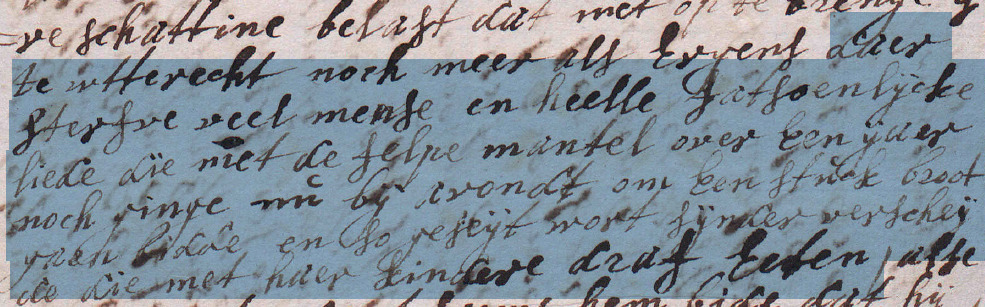 re schattine belast dat met op te brenge
te wtterecht noch meer als Ergens daer
sterfve veel mense en heelle fatsoenlijcke
liede die met de felpe mantel over Een jaer
noch ginge nu bij avondt om Een stuck broot
gaen bidde en so geseijt wort sijnder verscheij
de die met haer kindere draf Eeten / alle
hem bidt dat hij